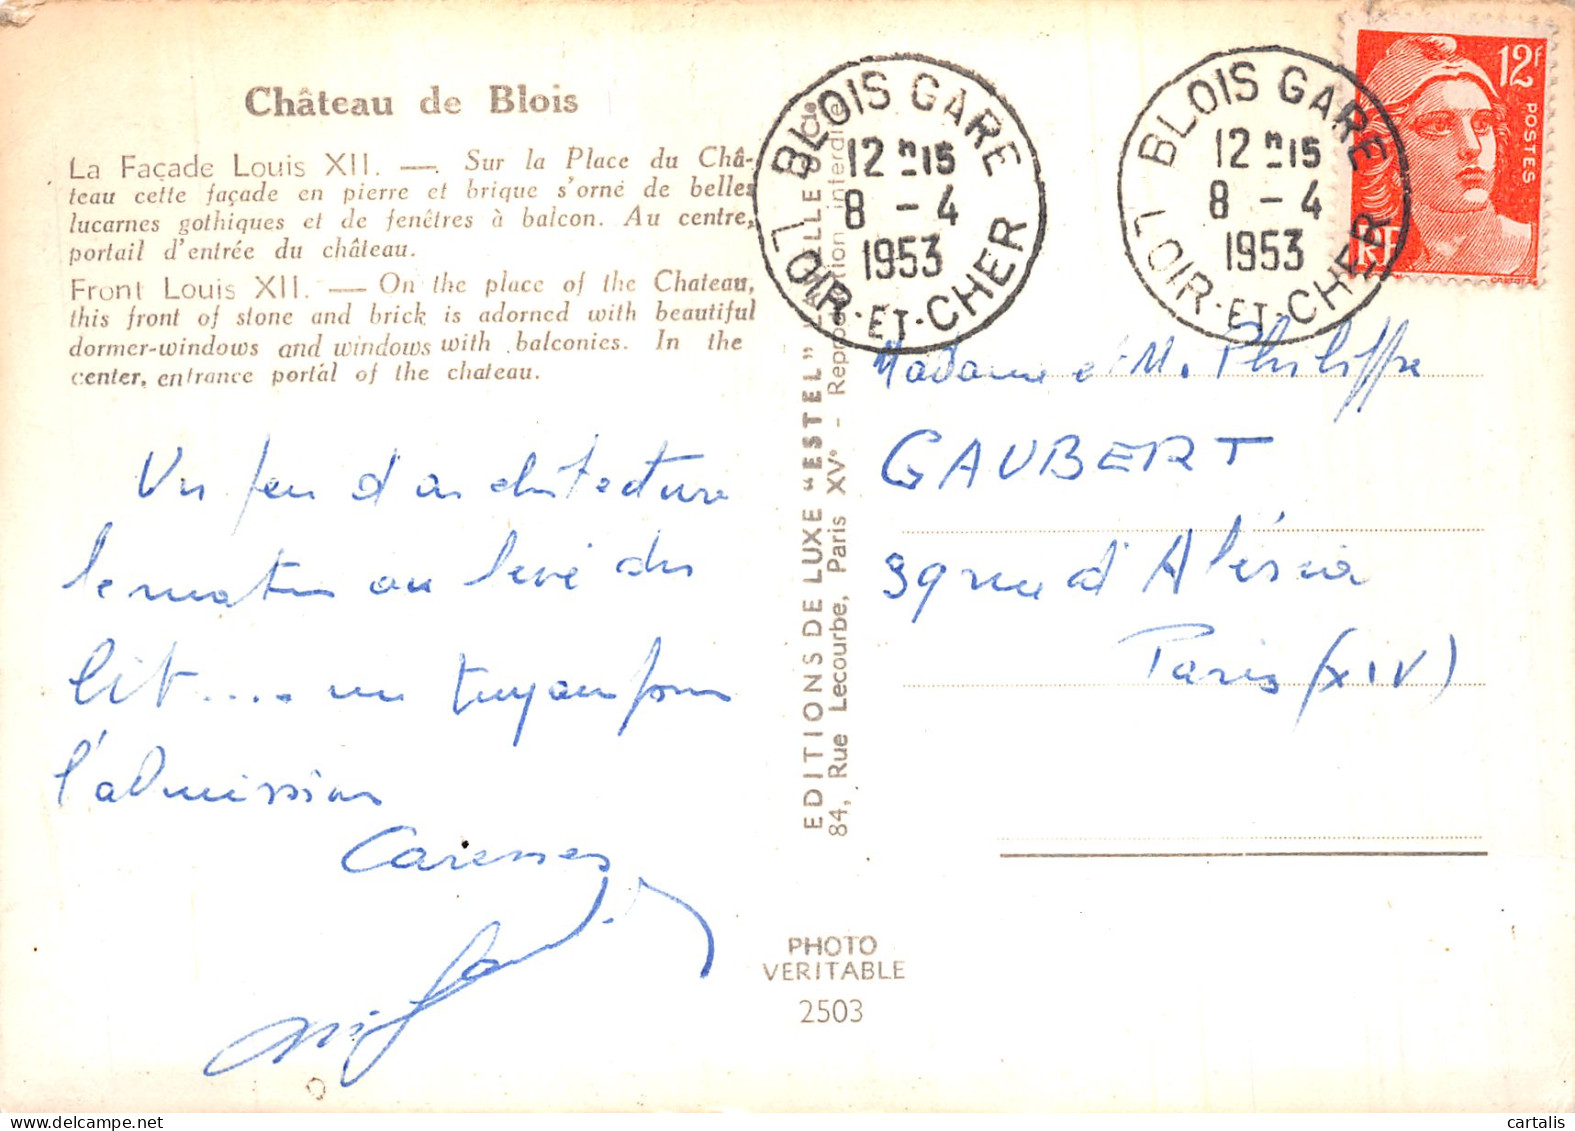 Château de Blois
La Façade Louis XII. —. Sur la Place du Châ-
teau cette façade en pierre et brique s'orne de belles
lucarnes gothiques et de fenêtres à balcon. Au centre,
portail d'entrée du château.
Front Louis XII. — On the place of the Chateau,
this front of stone and brick is adorned with beautiful
dormer-windows and windows with balconies. In the
center, entrance portal of the chateau.
Un peu d'architecture
le matin au levé du
lit.... un tuyau pour
l'admission
Caresses
EDITIONS DE LUXE "ESTEL"
84, Rue Lecourbe, Paris XVe - Reproduction interdite
PHOTO
VERITABLE
2503
BLOIS GARE
12 H 15
8 - 4
1953
LOIR-ET-CHER
BLOIS GARE
12 H 15
8 - 4
1953
LOIR-ET-CHER
12F
POSTES
RF
Madame et M. Philippe
GAUBERT
39 rue d'Alésia
Paris (XIV)
cartalis
delcampe.net